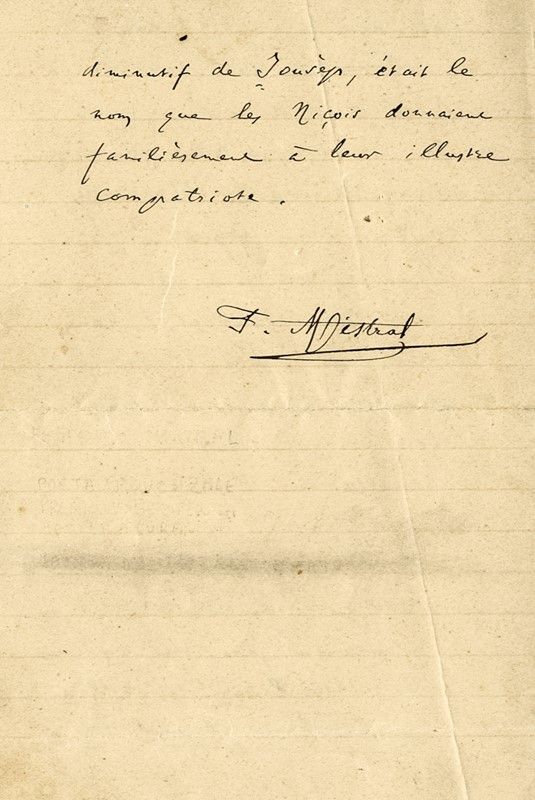 diminutif de Jousèp, était le
nom que les Niçois donnaient
familièrement à leur illustre
compatriote.
F. Mistral